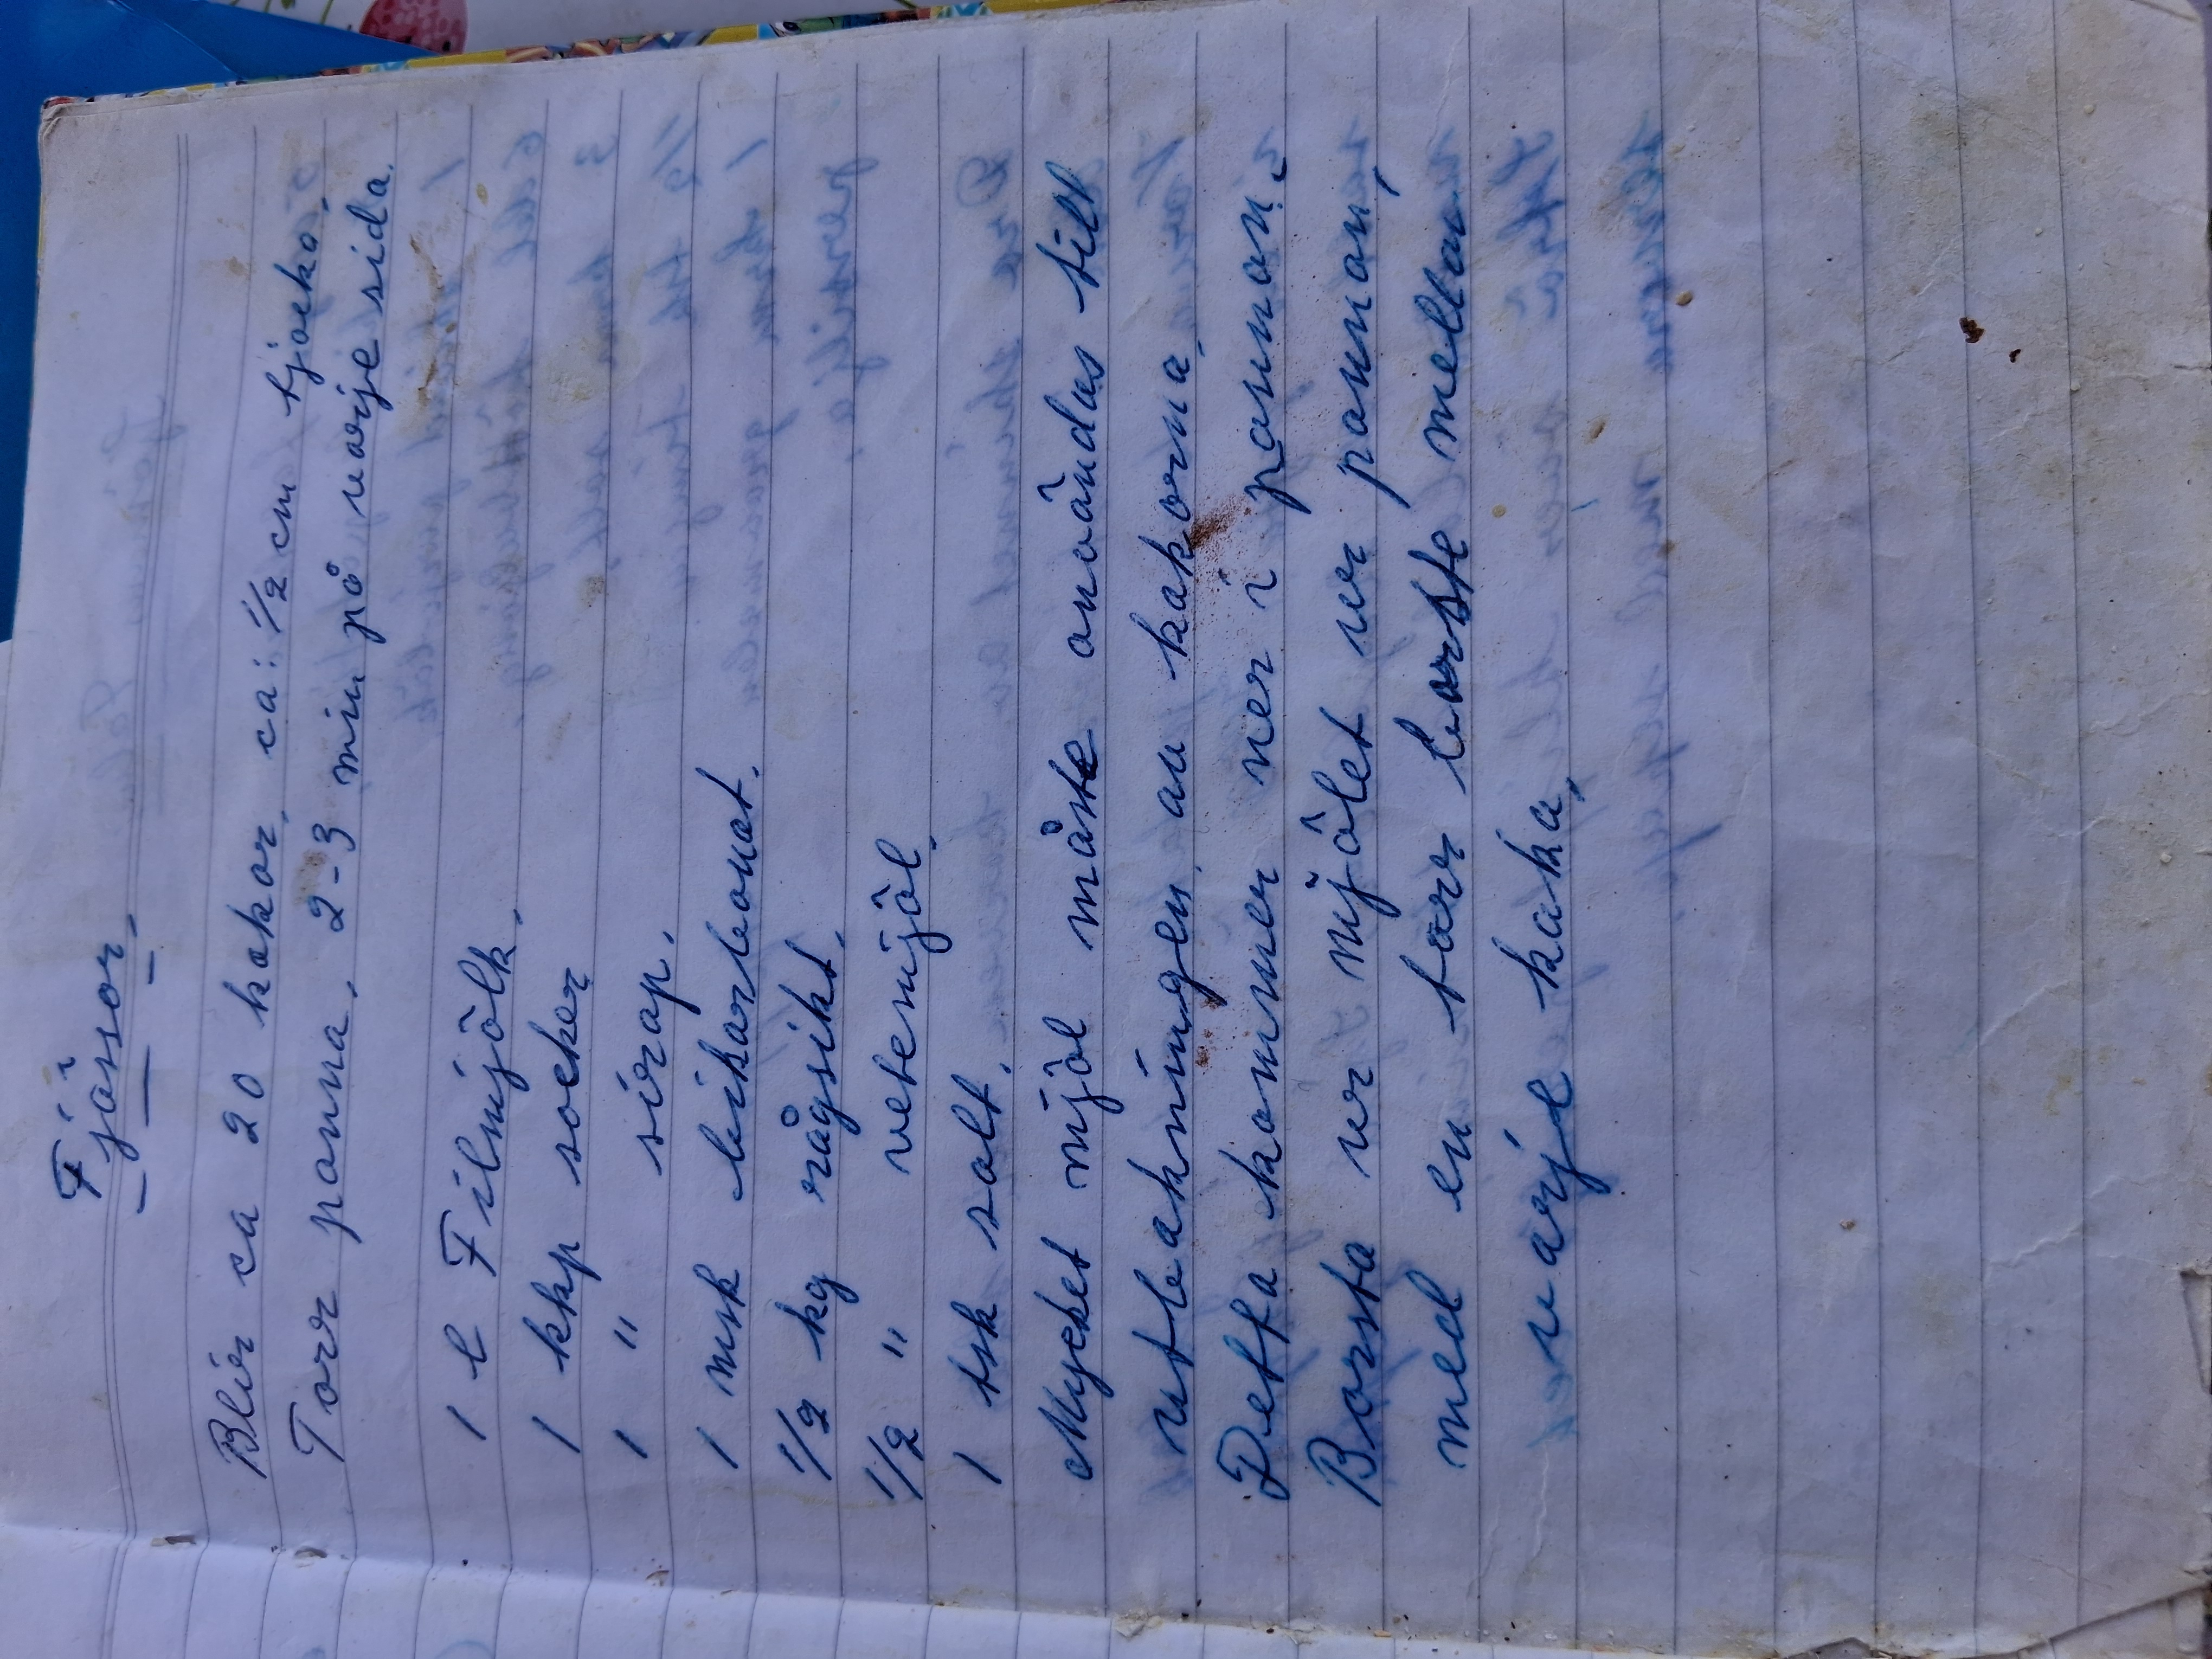 Fjäsor.
Blir ca 20 kakor, ca: 1/2 cm tjocka.
Torr panna. 2-3 min på varje sida.
1 l Filmjölk.
1 kkp socker
1 " sirap.
1 msk bikarbonat.
1/2 kg rågsikt.
1/2 " vetemjöl.
1 tsk salt.
Mycket mjöl måste användas till
utbakningen av kakorna.
Detta kommer ner i pannan.
Borsta ur mjölet ur pannan,
med en torr borste mellan
varje kaka.